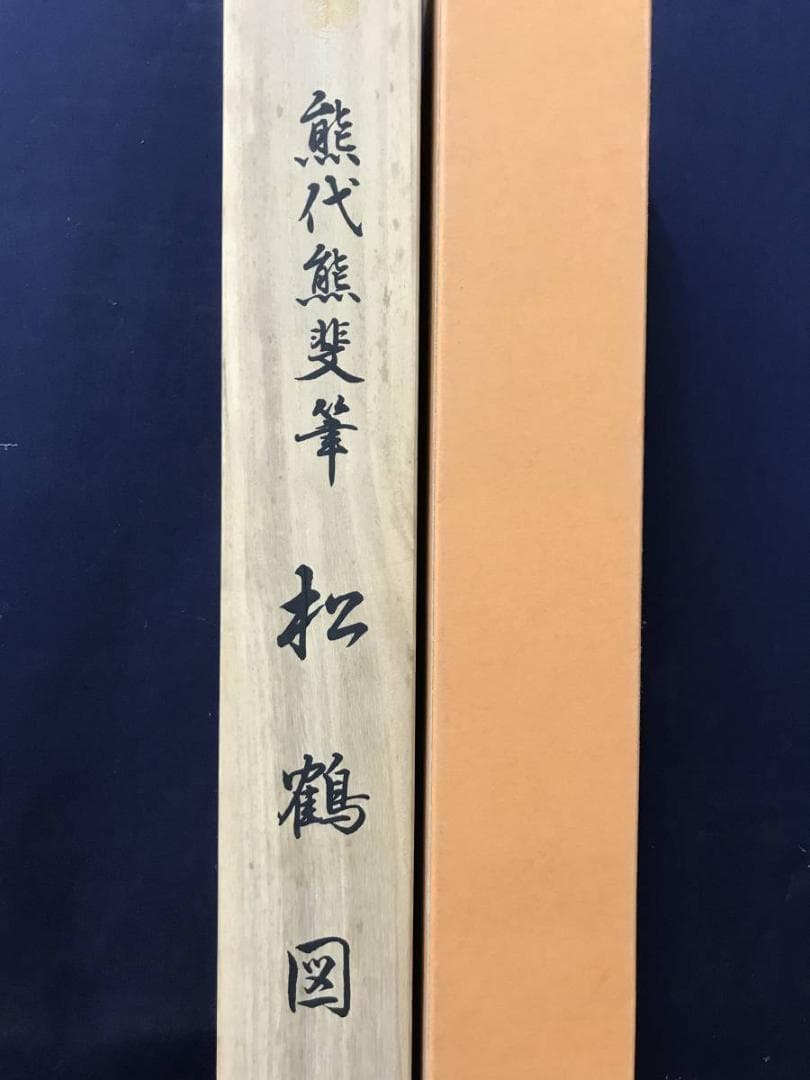 熊代熊斐筆 松鶴図